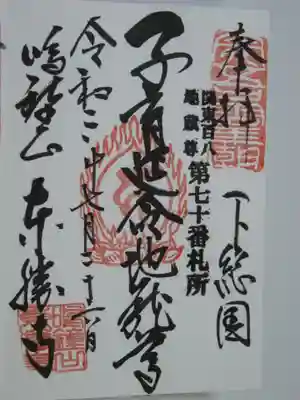 奉拝
下総国
関東百八
地蔵尊
第七十番札所
子育延命地蔵尊
令和二年七月二十六日
東勝寺